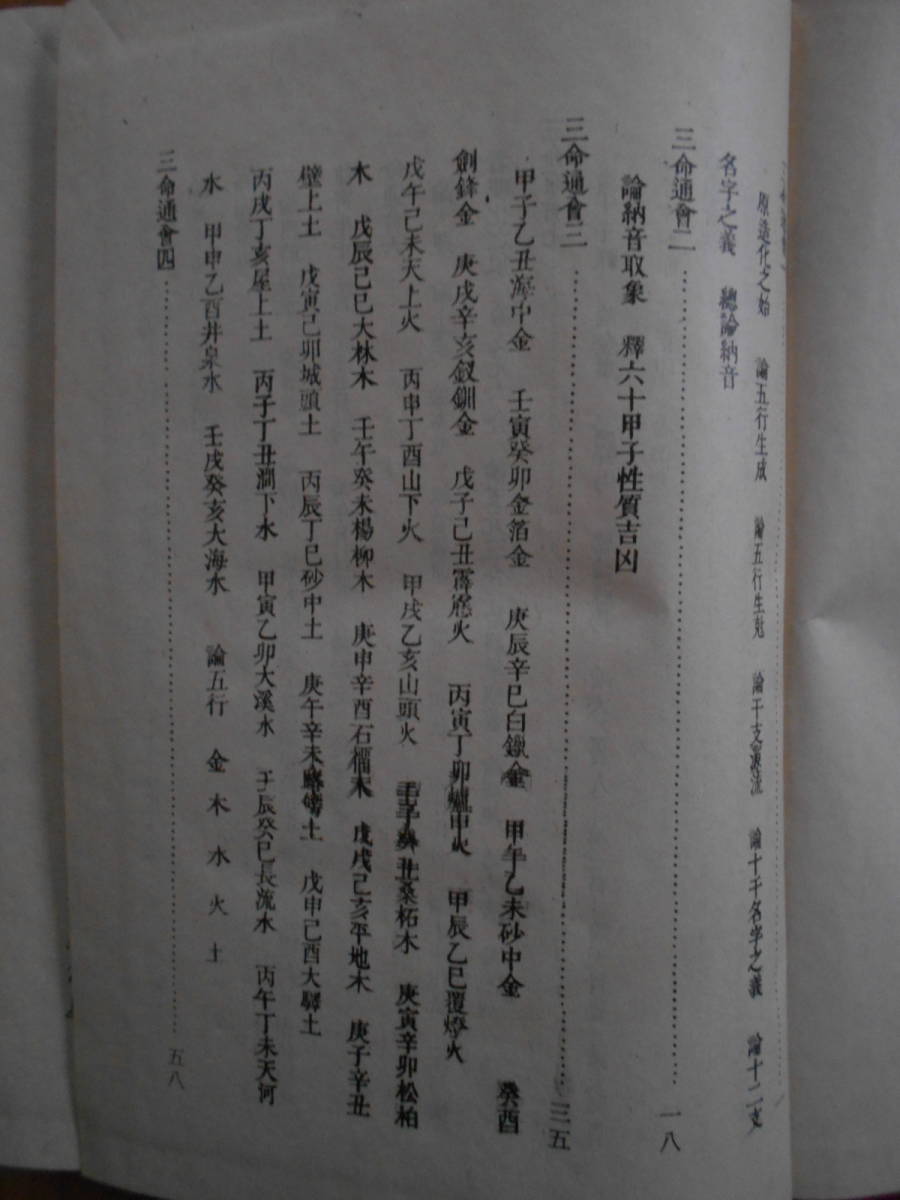 原造化之始　論五行生成　論五行生尅　論干支源流　論十干名字之義　論十二支
名字之義　總論納音
三命通會二……一八
論納音取象　釋六十甲子性質吉凶
三命通會三……三五
甲子乙丑海中金　壬寅癸卯金箔金　庚辰辛巳白鑞金　甲午乙未砂中金　癸酉
劍鋒金　庚戌辛亥釵釧金　戊子己丑霹靂火　丙寅丁卯爐中火　甲辰乙巳覆燈火
戊午己未天上火　丙申丁酉山下火　甲戌乙亥山頭火　壬子癸丑桑柘木　庚寅辛卯松柏
木　戊辰己巳大林木　壬午癸未楊柳木　庚申辛酉石榴木　戊戌己亥平地木　庚子辛丑
壁上土　戊寅己卯城頭土　丙辰丁巳砂中土　庚午辛未路傍土　戊申己酉大驛土
丙戌丁亥屋上土　丙子丁丑澗下水　甲寅乙卯大溪水　壬辰癸巳長流水　丙午丁未天河
水　甲申乙酉井泉水　壬戌癸亥大海水　論五行　金木水火土
三命通會四……五八